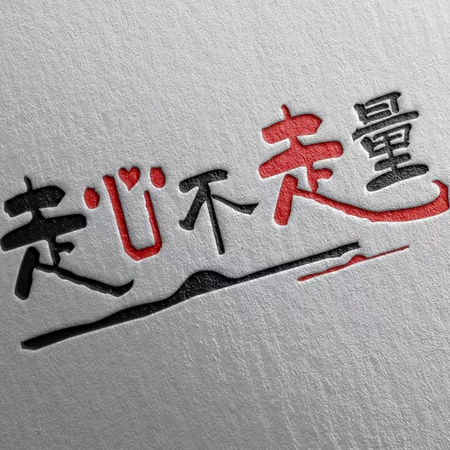 走心不走量